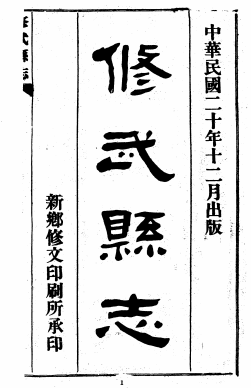 中華民國二十年十二月出版
修武縣志
新鄉修文印刷所承印
修武縣志